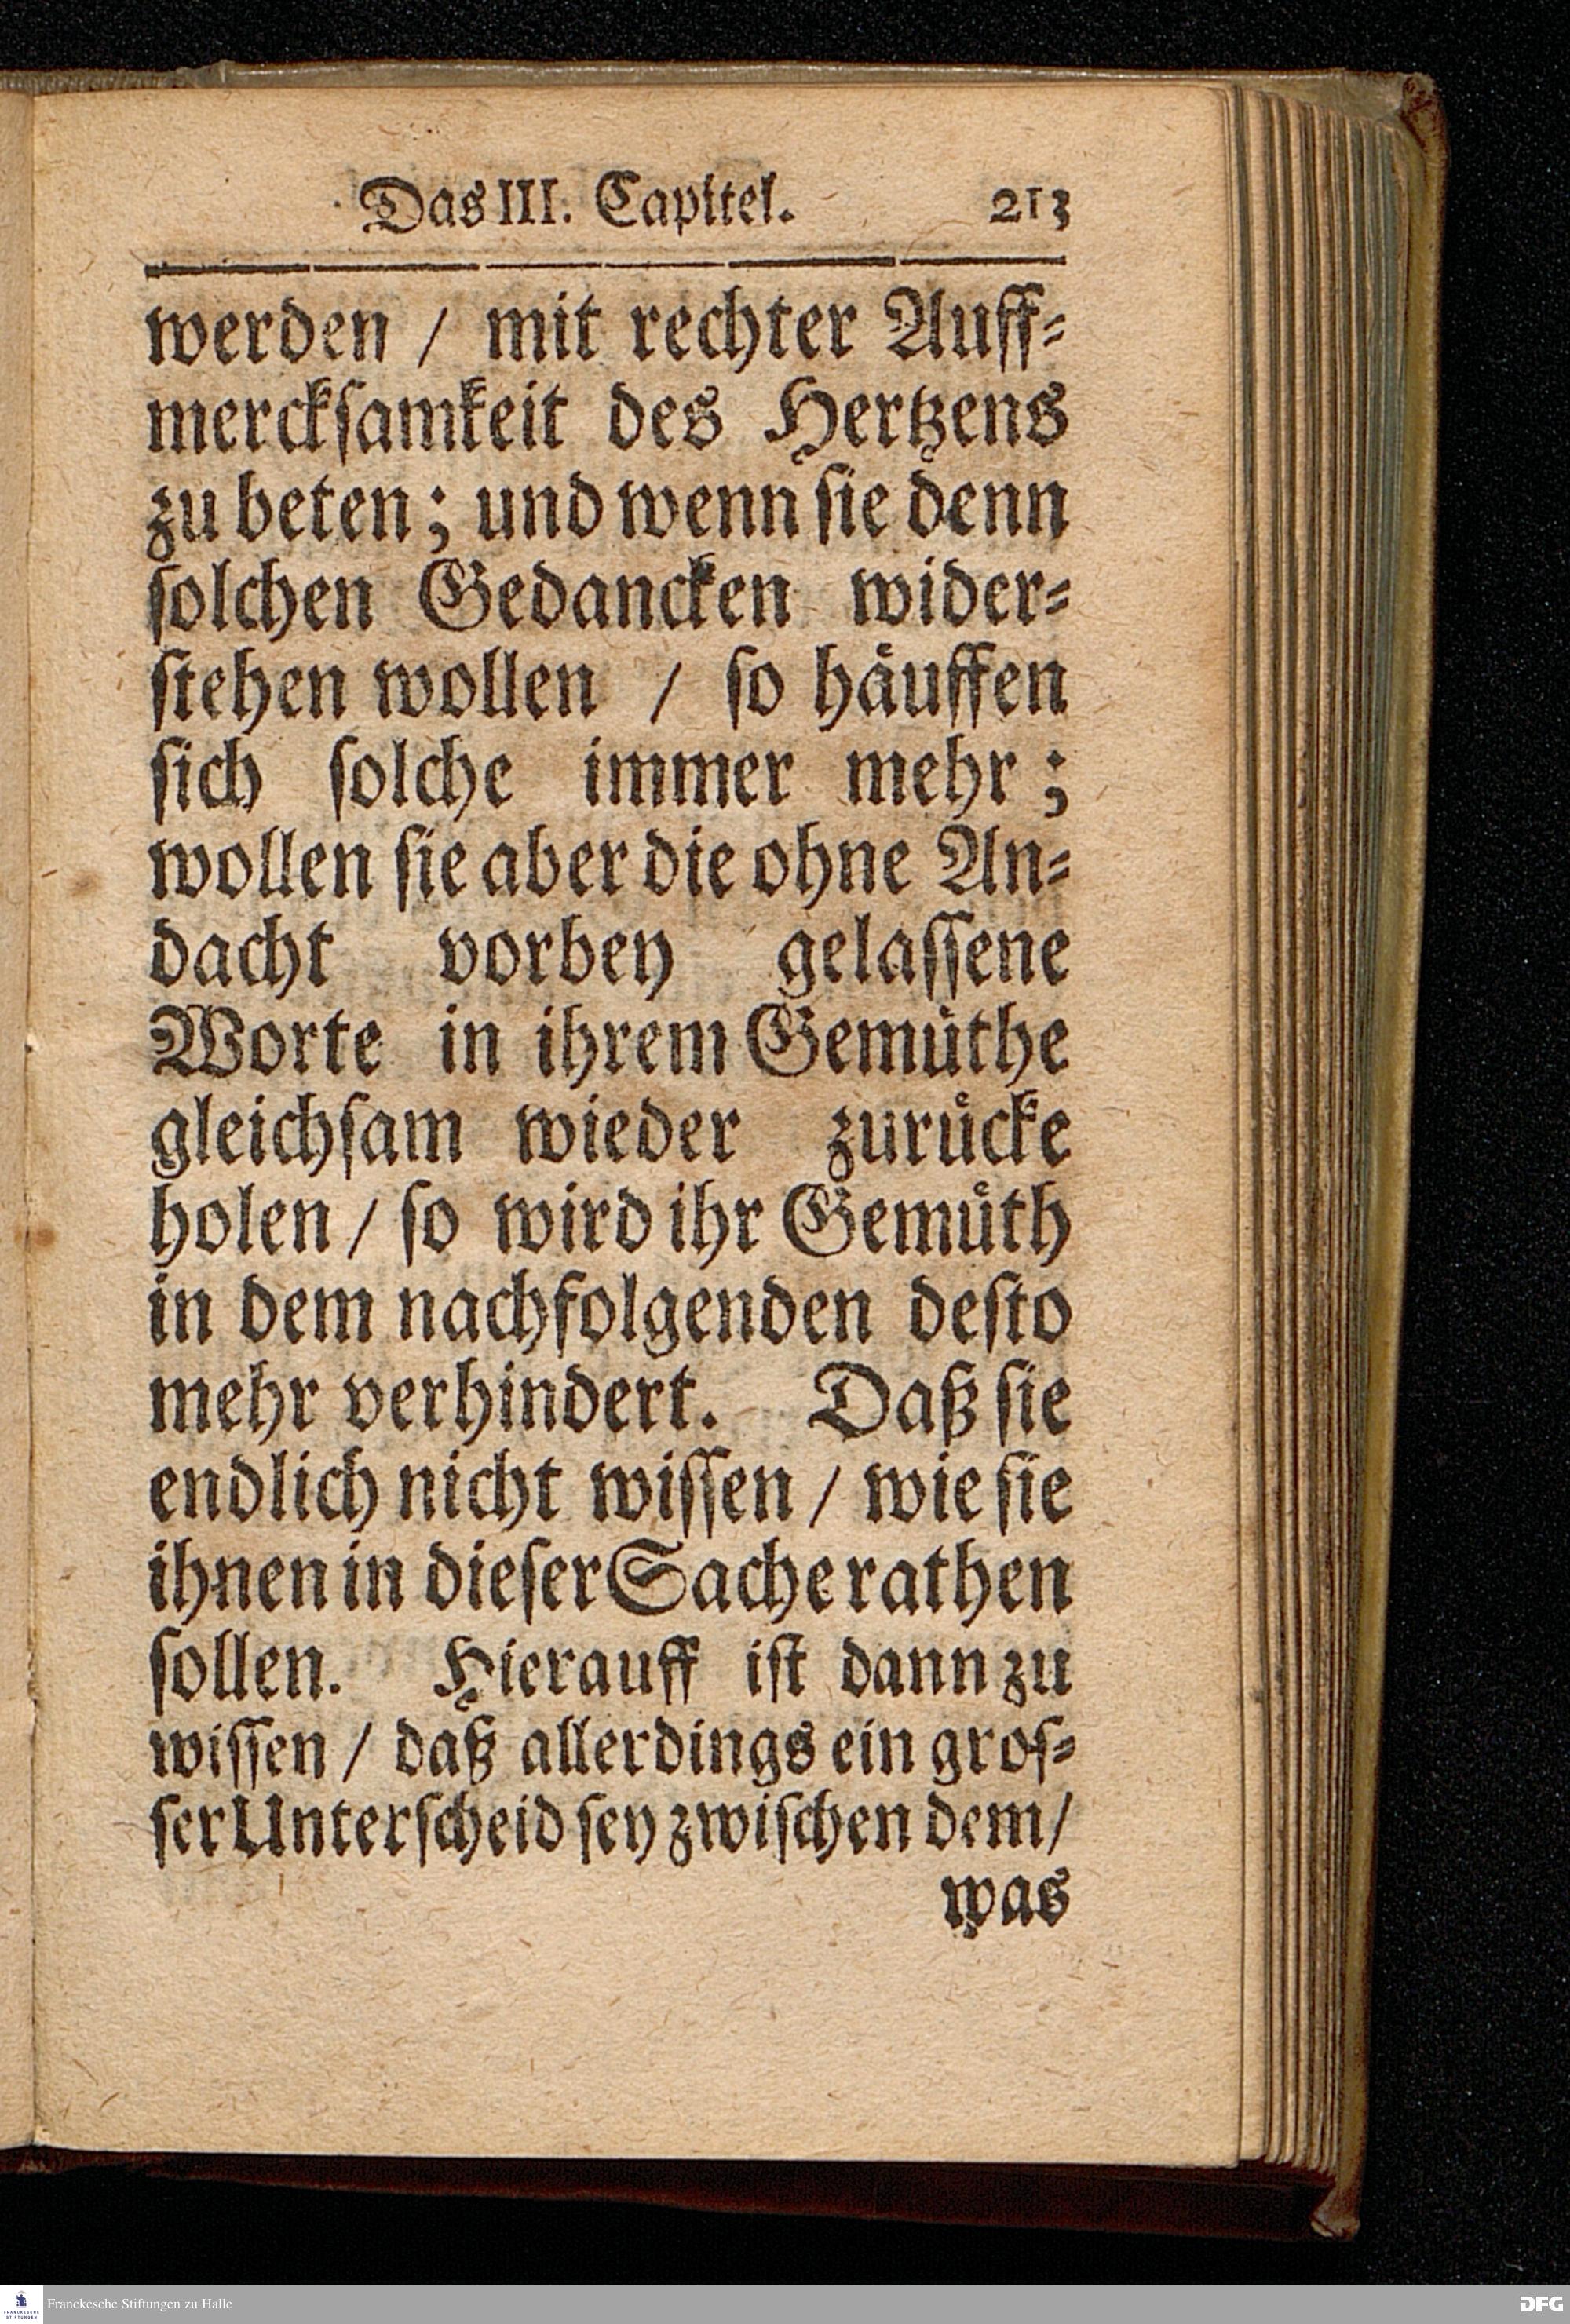 Das III. Capitel. 213
werden / mit rechter Auff⸗
merckſamkeit des Hertzens
zu beten; und wenn ſie denn
ſolchen Gedancken wider⸗
ſtehen wollen / ſo haͤuffen
ſich ſolche immer mehr;
wollen ſie aber die ohne An⸗
dacht vorbey gelaſſene
Worte in ihrem Gemuͤthe
gleichſam wieder zuruͤcke
holen / ſo wird ihr Gemuͤth
in dem nachfolgenden deſto
mehr verhindert. Daß ſie
endlich nicht wiſſen / wie ſie
ihnen in dieſer Sache rathen
ſollen. Hierauff iſt dann zu
wiſſen / daß allerdings ein groſ⸗
ſer Unterſcheid ſey zwiſchen dem /
was
FRANCKESCHE
STIFTUNGEN
Franckesche Stiftungen zu Halle
DFG